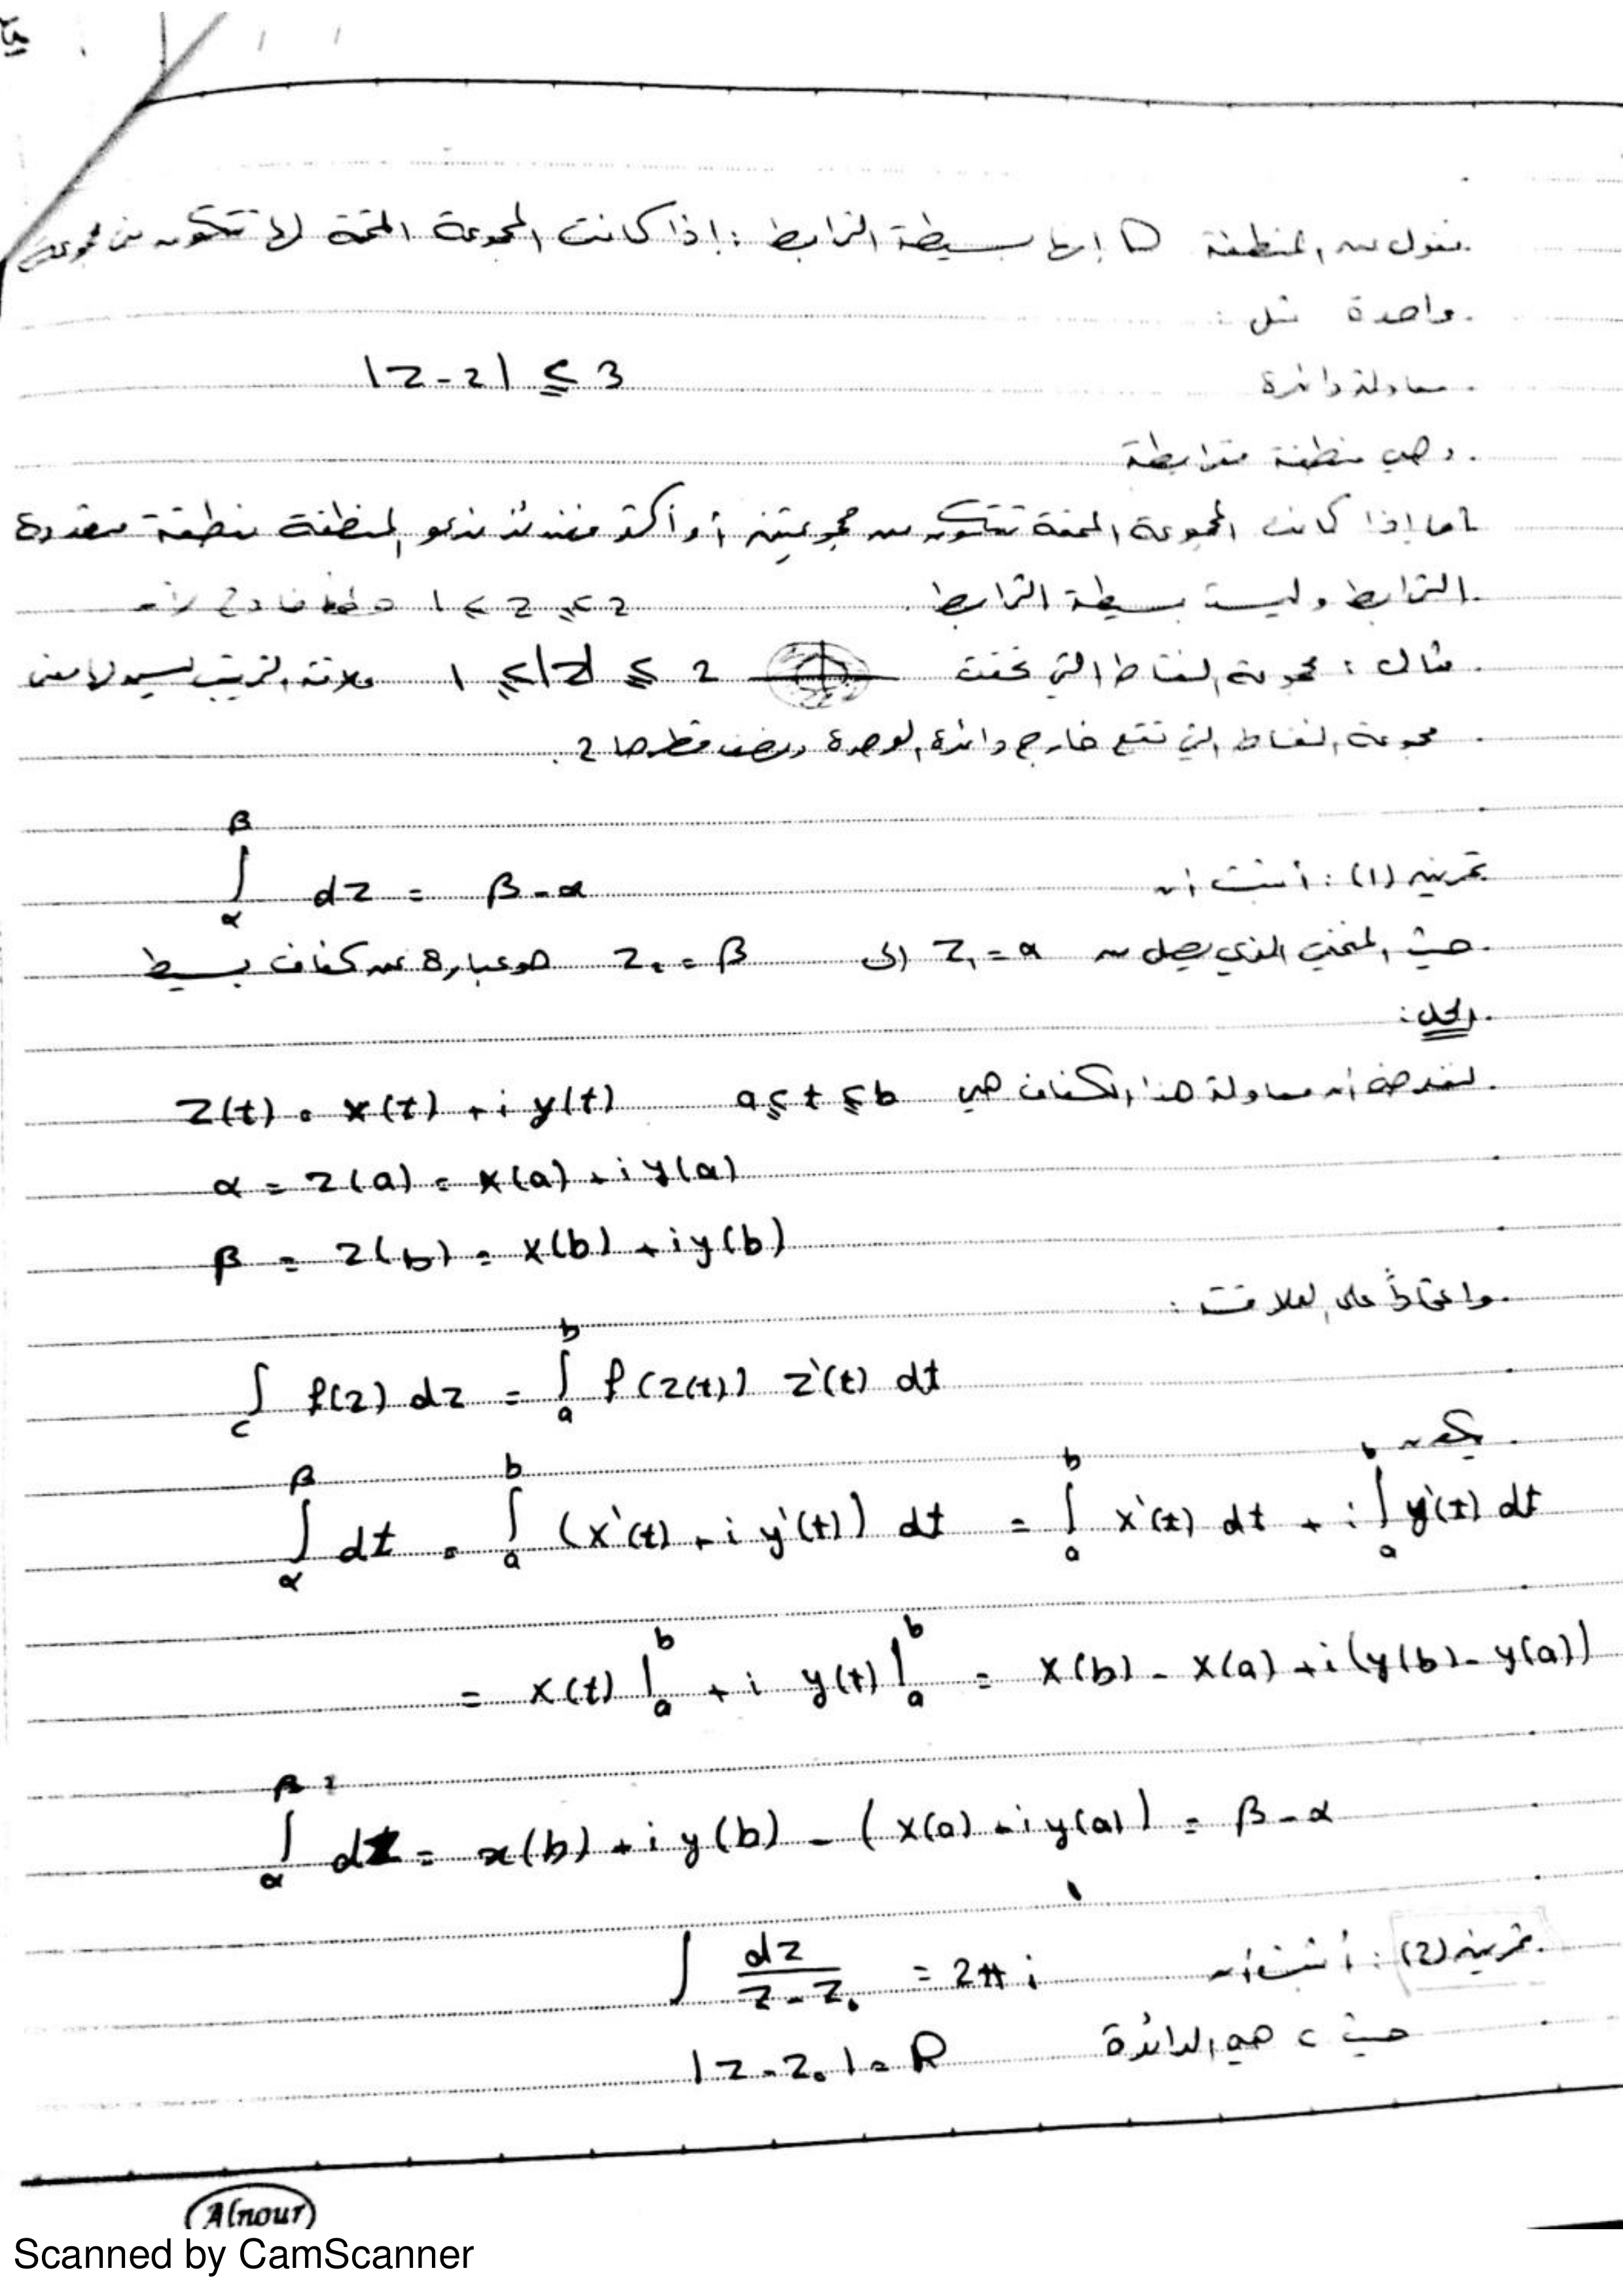 نقول عن المنطقة D إنها بسيطة الترابط : إذا كانت المجموعة المتممة لها تتكون من مجموعة
واحدة مثل :
معادلة دائرة |z - 2| ≤ 3
وهي منطقة مترابطة
أما إذا كانت المجموعة المتممة تتكون من مجموعتين أو أكثر فعندئذ ندعو المنطقة منطقة متعددة
الترابط وليست بسيطة الترابط 1 < z ≤ 2
مثال : مجموعة النقاط التي تحقق 1 ≤ |z| ≤ 2 علاقة الترتيب ليس لها معنى
مجموعة النقاط التي تقع خارج دائرة الوحدة ونصف قطرها 2.
تمرين (1) : أثبت أن ∫_α^β dz = β - α
حيث المنحني الذي يصل من z₁ = α إلى z₂ = β هو عبارة عن كفاف بسيط
الحل :
لنفرض أن معادلة هذا الكفاف هي a ≤ t ≤ b z(t) = x(t) + i y(t)
α = z(a) = x(a) + i y(a)
β = z(b) = x(b) + i y(b)
واعتماداً على العلاقة :
∫_c f(z) dz = ∫_a^b f(z(t)) z'(t) dt
يكون
∫_α^β dt = ∫_a^b (x'(t) + i y'(t)) dt = ∫_a^b x'(t) dt + i ∫_a^b y'(t) dt
= x(t) |_a^b + i y(t) |_a^b = x(b) - x(a) + i (y(b) - y(a))
∫_α^β dz = x(b) + i y(b) - (x(a) + i y(a)) = β - α
تمرين (2) : أثبت أن ∫ dz / (z - z₀) = 2π i
حيث c هي الدائرة |z - z₀| = R
Alnour
Scanned by CamScanner